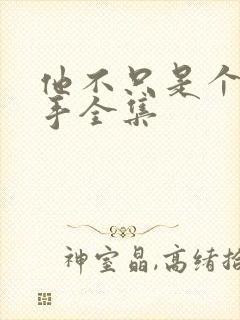 他不只是个
手全集
神室晶,高绪拾